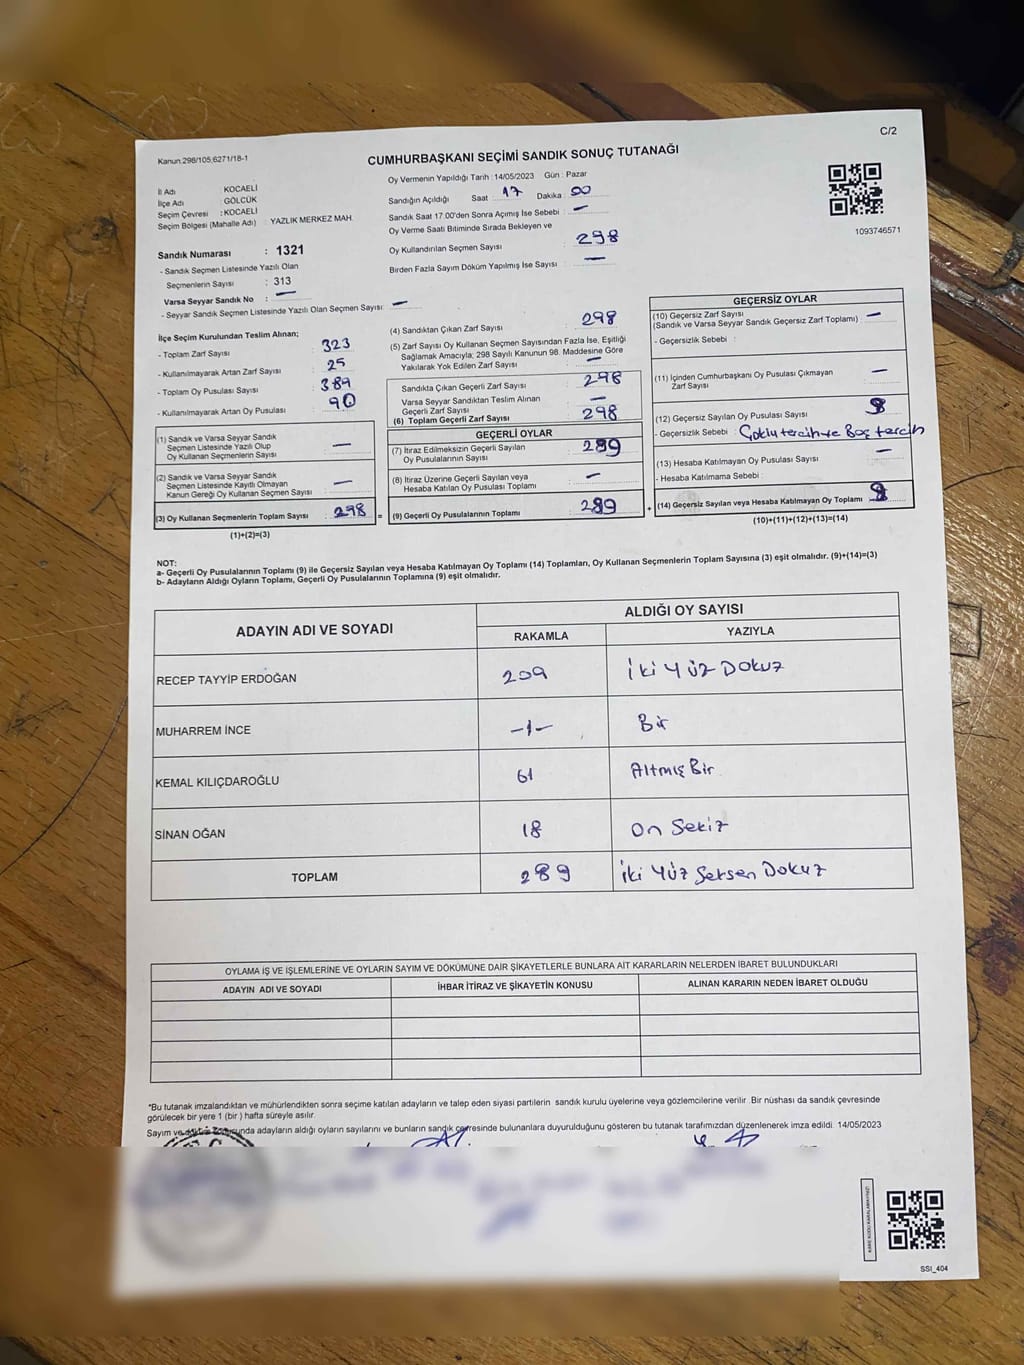 C/2
Kanun:298/105;6271/18-1
CUMHURBAŞKANI SEÇİMİ SANDIK SONUÇ TUTANAĞI
İl Adı : KOCAELİ
İlçe Adı : GÖLCÜK
Seçim Çevresi : KOCAELİ
Seçim Bölgesi (Mahalle Adı) : YAZLIK MERKEZ MAH.
Sandık Numarası : 1321
- Sandık Seçmen Listesinde Yazılı Olan
Seçmenlerin Sayısı : 313
Varsa Seyyar Sandık No : —
- Seyyar Sandık Seçmen Listesinde Yazılı Olan Seçmen Sayısı : —
Oy Vermenin Yapıldığı Tarih : 14/05/2023 Gün : Pazar
Sandığın Açıldığı Saat : 17 Dakika : 00
Sandık Saat 17:00'den Sonra Açılmış İse Sebebi : —
Oy Verme Saati Bitiminde Sırada Bekleyen ve
Oy Kullandırılan Seçmen Sayısı : 298
Birden Fazla Sayım Döküm Yapılmış İse Sayısı : —
1093746571
İlçe Seçim Kurulundan Teslim Alınan;
- Toplam Zarf Sayısı : 323
- Kullanılmayarak Artan Zarf Sayısı : 25
- Toplam Oy Pusulası Sayısı : 389
- Kullanılmayarak Artan Oy Pusulası : 90
(1) Sandık ve Varsa Seyyar Sandık
Seçmen Listesinde Yazılı Olup
Oy Kullanan Seçmenlerin Sayısı : —
(2) Sandık ve Varsa Seyyar Sandık
Seçmen Listesinde Kayıtlı Olmayan
Kanun Gereği Oy Kullanan Seçmen Sayısı : —
(3) Oy Kullanan Seçmenlerin Toplam Sayısı : 298 =
(1)+(2)=(3)
(4) Sandıktan Çıkan Zarf Sayısı : 298
(5) Zarf Sayısı Oy Kullanan Seçmen Sayısından Fazla İse, Eşitliği
Sağlamak Amacıyla; 298 Sayılı Kanunun 98. Maddesine Göre
Yakılarak Yok Edilen Zarf Sayısı : —
Sandıkta Çıkan Geçerli Zarf Sayısı : 298
Varsa Seyyar Sandıktan Teslim Alınan
Geçerli Zarf Sayısı : —
(6) Toplam Geçerli Zarf Sayısı : 298
GEÇERLİ OYLAR
(7) İtiraz Edilmeksizin Geçerli Sayılan
Oy Pusulalarının Sayısı : 289
(8) İtiraz Üzerine Geçerli Sayılan veya
Hesaba Katılan Oy Pusulası Toplamı : —
(9) Geçerli Oy Pusulalarının Toplamı : 289 +
GEÇERSİZ OYLAR
(10) Geçersiz Zarf Sayısı
(Sandık ve Varsa Seyyar Sandık Geçersiz Zarf Toplamı) : —
- Geçersizlik Sebebi :
(11) İçinden Cumhurbaşkanı Oy Pusulası Çıkmayan
Zarf Sayısı : —
(12) Geçersiz Sayılan Oy Pusulası Sayısı :
- Geçersizlik Sebebi : Çoklu tercih ve Boş tercih
(13) Hesaba Katılmayan Oy Pusulası Sayısı : —
- Hesaba Katılmama Sebebi :
(14) Geçersiz Sayılan veya Hesaba Katılmayan Oy Toplamı :
(10)+(11)+(12)+(13)=(14)
NOT:
a- Geçerli Oy Pusulalarının Toplamı (9) ile Geçersiz Sayılan veya Hesaba Katılmayan Oy Toplamı (14) Toplamları, Oy Kullanan Seçmenlerin Toplam Sayısına (3) eşit olmalıdır. (9)+(14)=(3)
b- Adayların Aldığı Oyların Toplamı, Geçerli Oy Pusulalarının Toplamına (9) eşit olmalıdır.
ADAYIN ADI VE SOYADI ALDIĞI OY SAYISI
RAKAMLA YAZIYLA
RECEP TAYYİP ERDOĞAN 209 İki Yüz Dokuz
MUHARREM İNCE -1- Bir
KEMAL KILIÇDAROĞLU 61 Altmış Bir
SİNAN OĞAN 18 On Sekiz
TOPLAM 289 İki Yüz Seksen Dokuz
OYLAMA İŞ VE İŞLEMLERİNE VE OYLARIN SAYIM VE DÖKÜMÜNE DAİR ŞİKAYETLERLE BUNLARA AİT KARARLARIN NELERDEN İBARET BULUNDUKLARI
ADAYIN ADI VE SOYADI İHBAR İTİRAZ VE ŞİKAYETİN KONUSU ALINAN KARARIN NEDEN İBARET OLDUĞU
*Bu tutanak imzalandıktan ve mühürlendikten sonra seçime katılan adayların ve talep eden siyasi partilerin sandık kurulu üyelerine veya gözlemcilerine verilir. Bir nüshası da sandık çevresinde
görülecek bir yere 1 (bir) hafta süreyle asılır.
Sayım ve sonucunda adayların aldığı oyların sayılarını ve bunların sandık çevresinde bulunanlara duyurulduğunu gösteren bu tutanak tarafımızdan düzenlenerek imza edildi. 14/05/2023
SSI_404